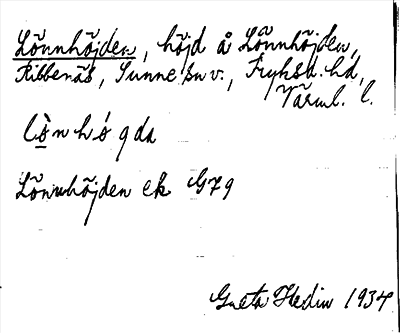 Lönnhöjden, höjd å Lönnhöjden,
Ribbenäs, Sunne sn v., Fryksd. hd,
Värml. l.
Lönnhöjden ek G79
Greta Hedin 1934